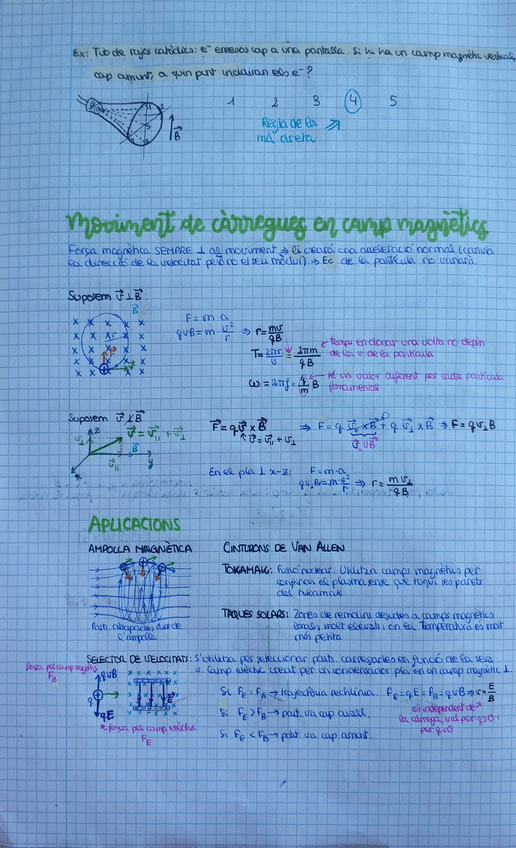 Ex: Tub de rajos catòdics: e⁻ emesos cap a una pantalla. Si hi ha un camp magnètic vertical,
cap amunt, a quin punt incidiran els e⁻?
1 2 3 4 5
B
Regla de la
mà dreta
Moviment de càrregues en camp magnètics
Força magnètica SEMPRE ⊥ al moviment → li crearà una acceleració normal (canvia
la direcció de la velocitat però no el seu mòdul) → Ec de la partícula no variarà.
Suposem v⊥B:
B
F = m·a
qvB = m·v²/r ⇒ r = mv/qB
T = 2πr/v = 2πm/qB
Temps en donar una volta no depèn
de la v de la partícula
ω = 2πf = q/m B
té un valor diferent per cada partícula
Suposem
z
v⊥
v = v∥ + v⊥
v∥
B
x
y
F = qv x B ⇒ F = q v∥ x B + q v⊥ x B ⇒ F = qv⊥B
v = v∥ + v⊥
v∥ ∥ B
En el pla ⊥ x-z: F = m·a
qv⊥B = m·v⊥²/r ⇒ r = m v⊥/qB
APLICACIONS
AMPOLLA MAGNÈTICA
CINTURONS DE VAN ALLEN
TOKAMAK: Fusió nuclear. Utilitza camps magnètics per
confinar el plasma sense que toqui les parets
del tukamak
Part. atrapades dins de
l'ampolla
TAQUES SOLARS: Zones de remolins degudes a camps magnètics
locals molt elevats on la Temperatura és molt
més petita
SELECTOR DE VELOCITATS: S'utilitza per seleccionar parts. carregades en funció de la seva
v. Camp elèctric creat per un condensador pla en un camp magnètic ⊥.
força pel camp magnètic
F_B
qvB
qE
E
força pel camp elèctric
F_E
Si F_E = F_B → trajectòria rectilínia. F_E = qE = F_B = qvB ⇒ v = E/B
Si F_E > F_B → part. va cap avall.
Si F_E < F_B → part. va cap amunt.
és independent de
la càrrega, val per q>0 i
per q<0